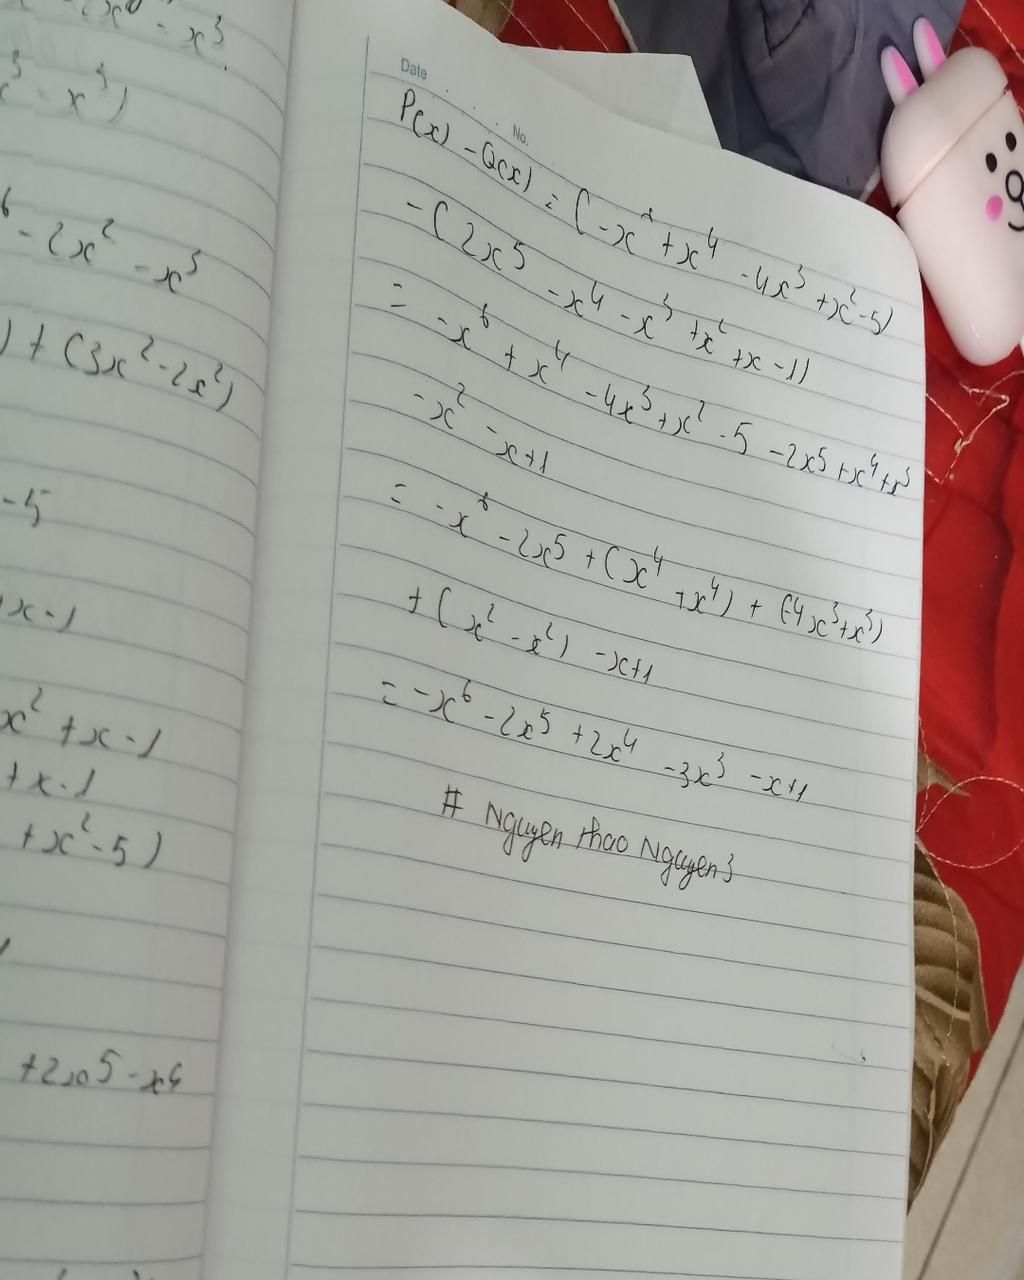 - x³
- x³)
- 2x² - x³
) + (3x² - 2x²)
-5
x - 1
x² + x - 1
+ x - 1
+ x² - 5)
+ 2x⁵ - x⁴
Date
No.
P(x) - Q(x) = (-x⁶ + x⁴ - 4x³ + x² - 5)
- (2x⁵ - x⁴ - x³ + x² + x - 1)
= -x⁶ + x⁴ - 4x³ + x² - 5 - 2x⁵ + x⁴ + x³
- x² - x + 1
= -x⁶ - 2x⁵ + (x⁴ + x⁴) + (-4x³ + x³)
+ (x² - x²) - x + 1
= -x⁶ - 2x⁵ + 2x⁴ - 3x³ - x + 1
# Nguyen thao Nguyen3